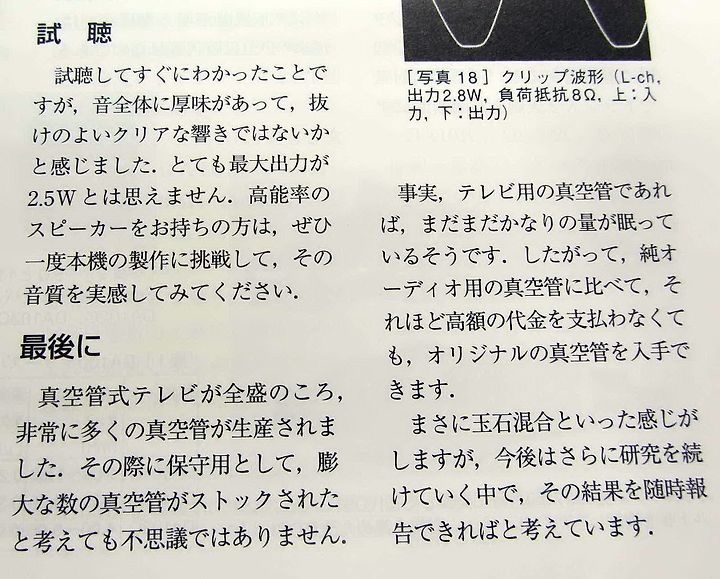 試 聴
試聴してすぐにわかったことで
すが，音全体に厚味があって，抜
けのよいクリアな響きではないか
と感じました．とても最大出力が
2.5W とは思えません．高能率の
スピーカーをお持ちの方は，ぜひ
一度本機の製作に挑戦して，その
音質を実感してみてください．
最後に
真空管式テレビが全盛のころ，
非常に多くの真空管が生産されま
した．その際に保守用として，膨
大な数の真空管がストックされた
と考えても不思議ではありません．
［写真 18］ クリップ波形（L-ch,
出力2.8W，負荷抵抗8Ω，上：入
力，下：出力）
事実，テレビ用の真空管であれ
ば，まだまだかなりの量が眠って
いるそうです．したがって，純オ
ーディオ用の真空管に比べて，そ
れほど高額の代金を支払わなくて
も，オリジナルの真空管を入手で
きます．
まさに玉石混合といった感じが
しますが，今後はさらに研究を続
けていく中で，その結果を随時報
告できればと考えています．